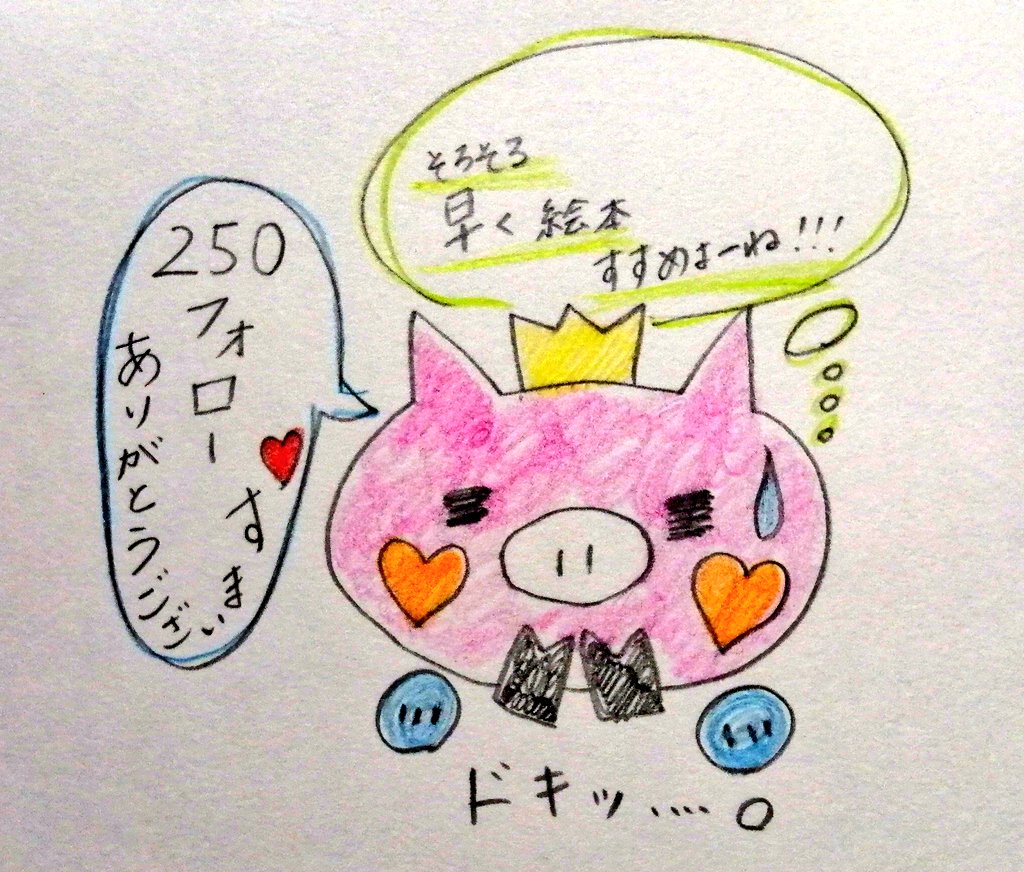 250
フォロー
ありがとうございます
そろそろ
早く絵本
すすめよーね!!!
ドキッ....。